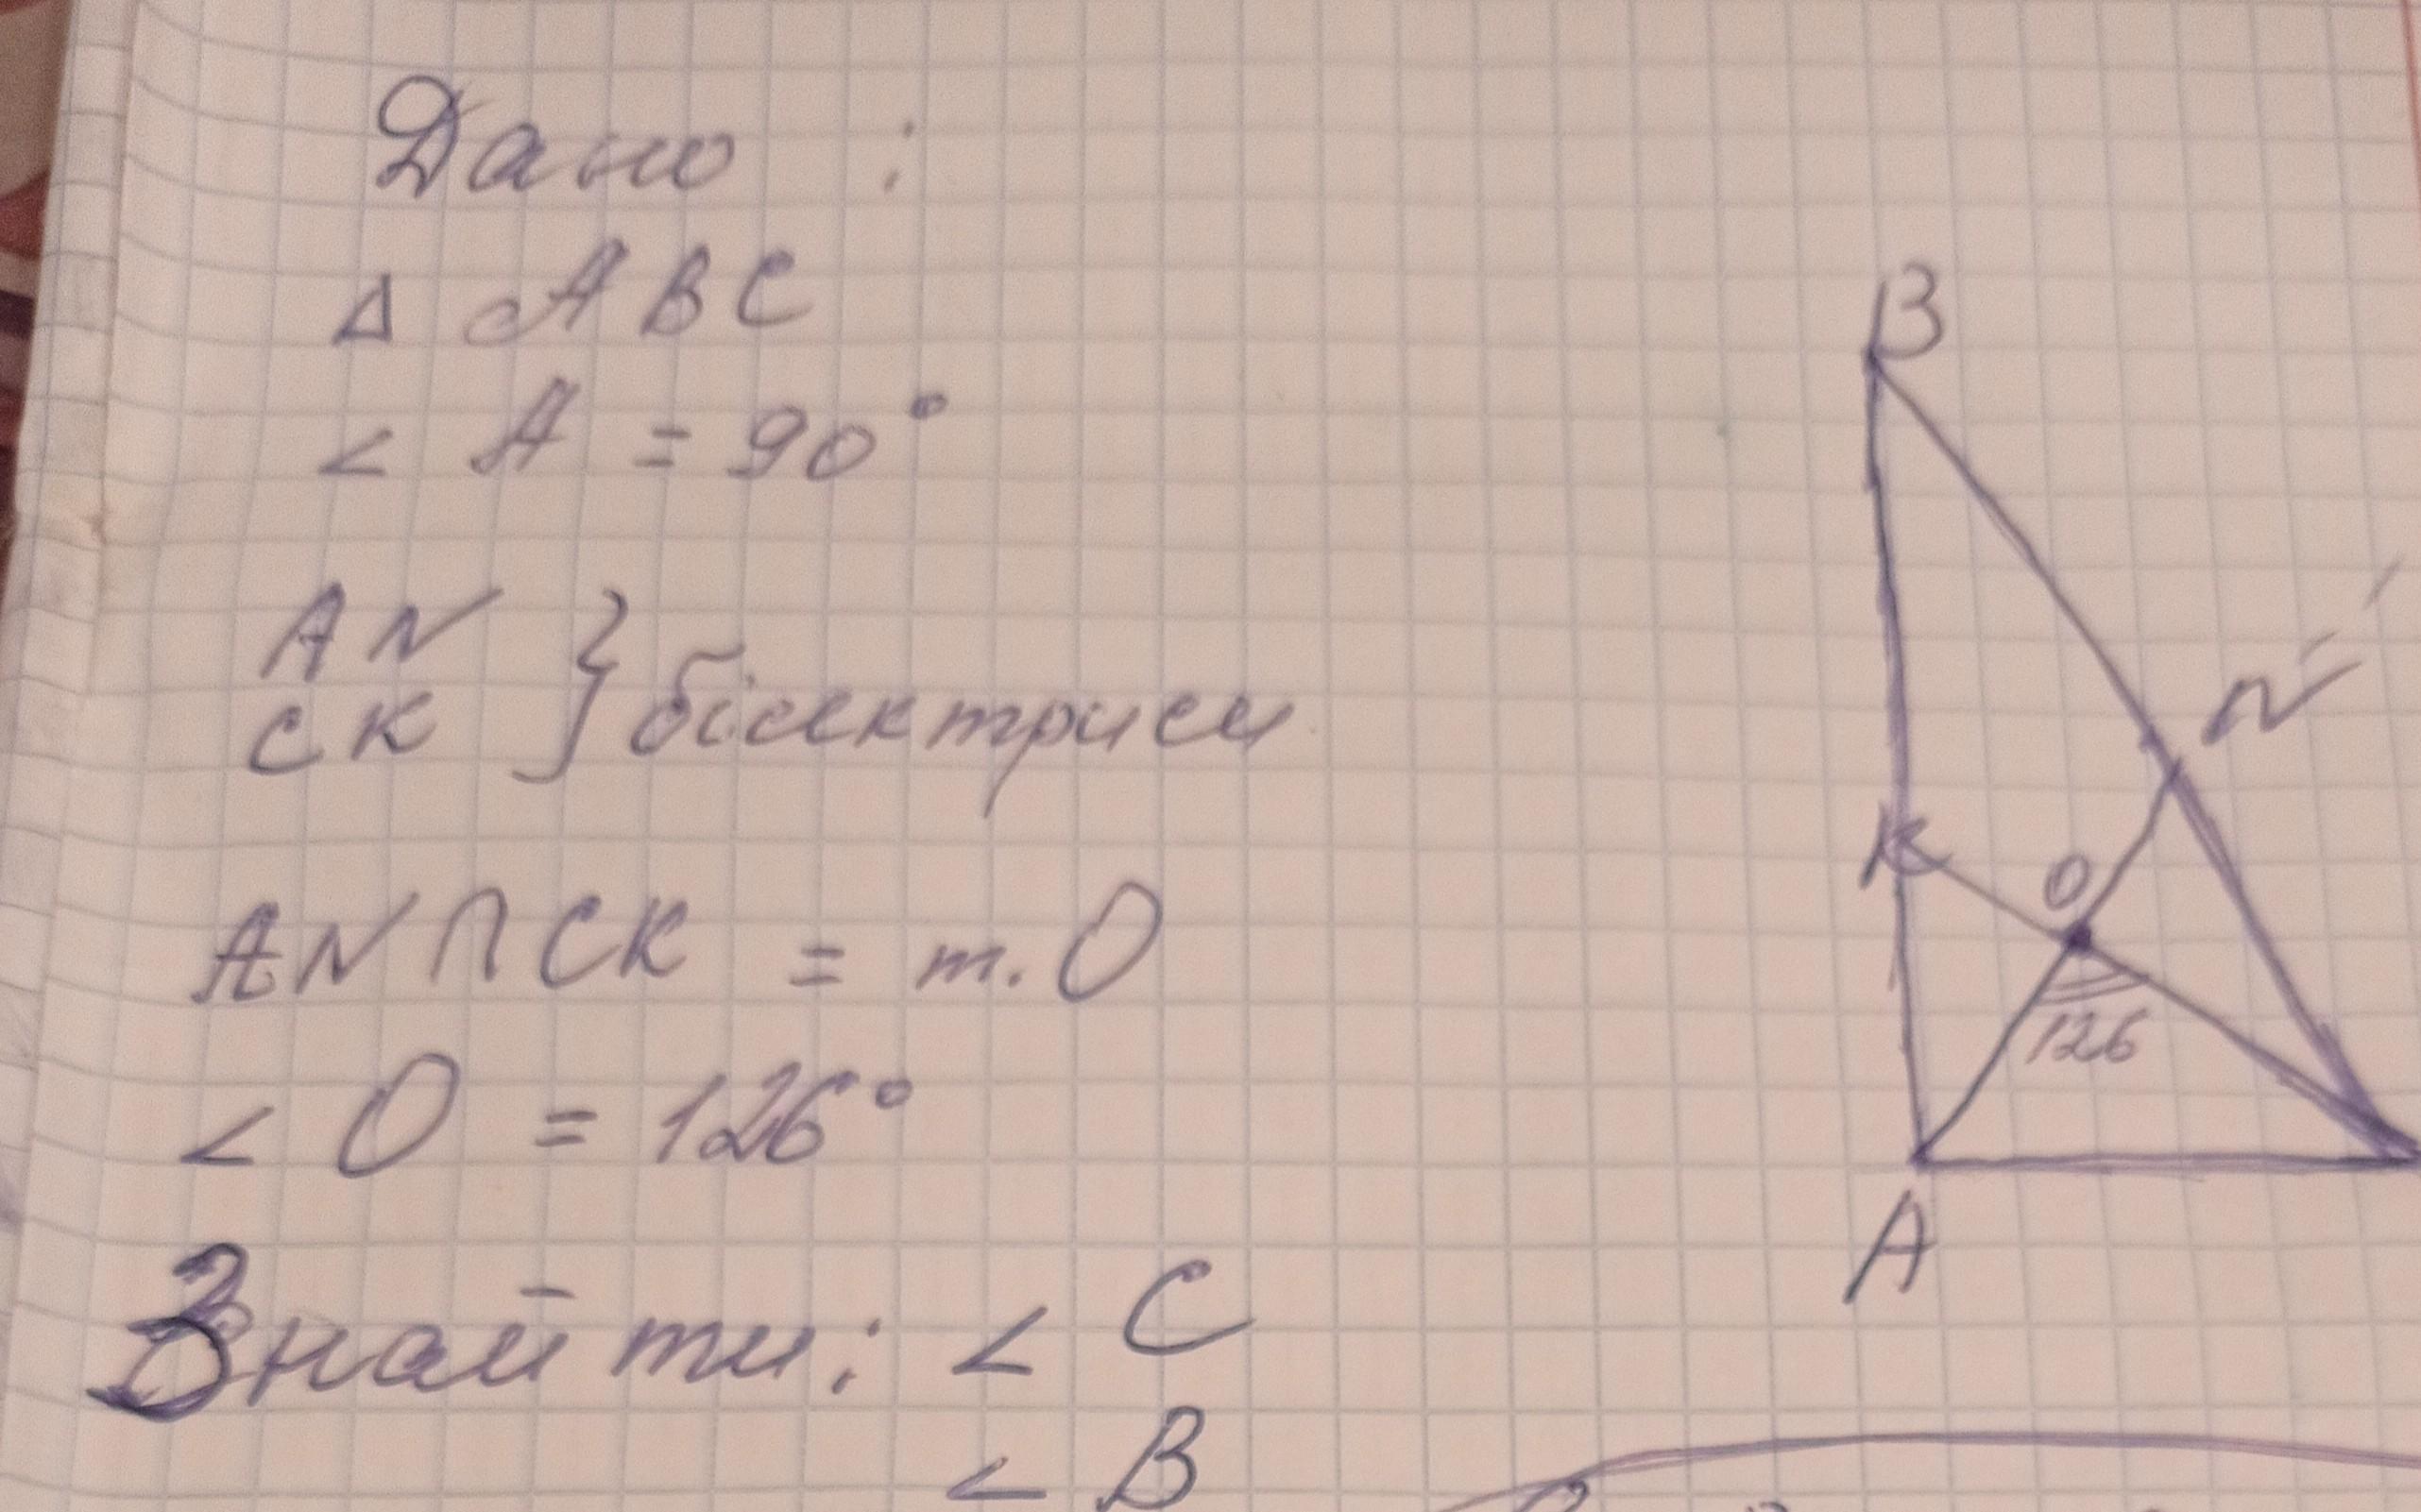 Дано :
Δ ABC
< A = 90°
AN
CK } бісектриси
AN ∩ CK = т. O
< O = 126°
Знайти: < C
< B
B
N
K
O
126
A